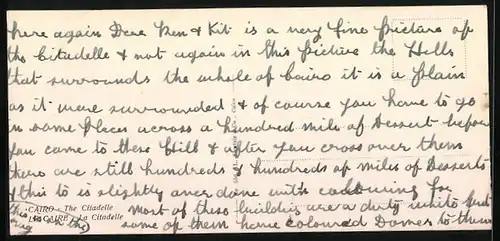 here again Dear Ken & Kit is a very fine picture of
the Citadelle & not again in this picture the Hills
that surrounds the whole of Cairo it is a plain
as it were surrounded & of course you have to go
in some places across a hundred mile of Dessert before
you come to these Hill & after you cross over them
there are still hundreds & hundreds of miles of Desserts
& this to is slightly over done with colouring for
this is on the most of these building are a dirty white but
some of them have coloured Domes to them
CAIRO - The Citadelle
LE CAIRE - La Citadelle